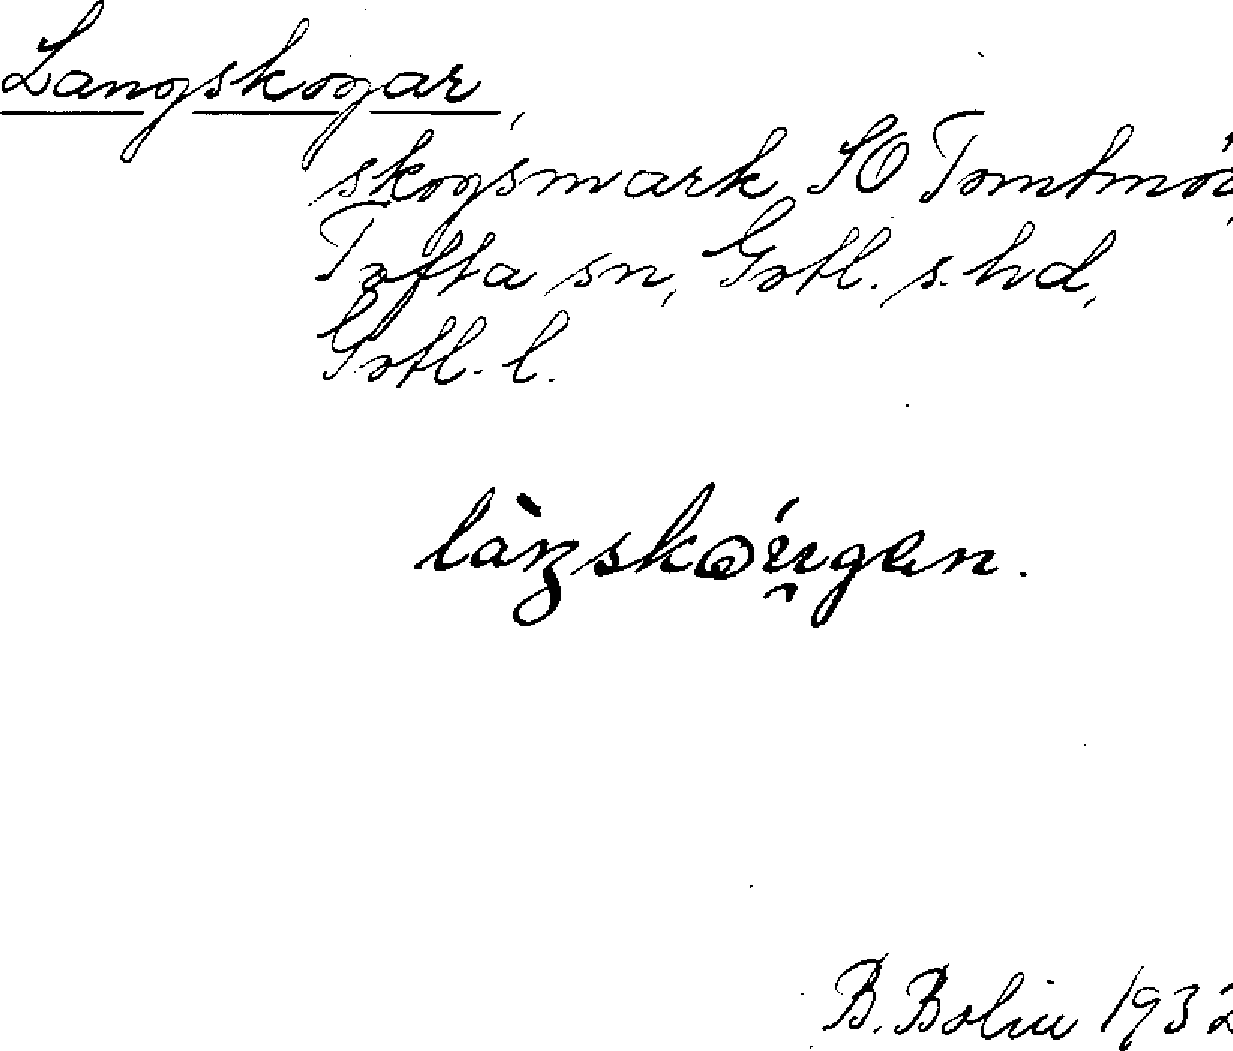 Langskogar,
skogsmark SO Tomtmör,
Tofta sn, Gotl. s. hd,
Gotl. l.
làŋskǫu̯gan.
B. Bolin 1932